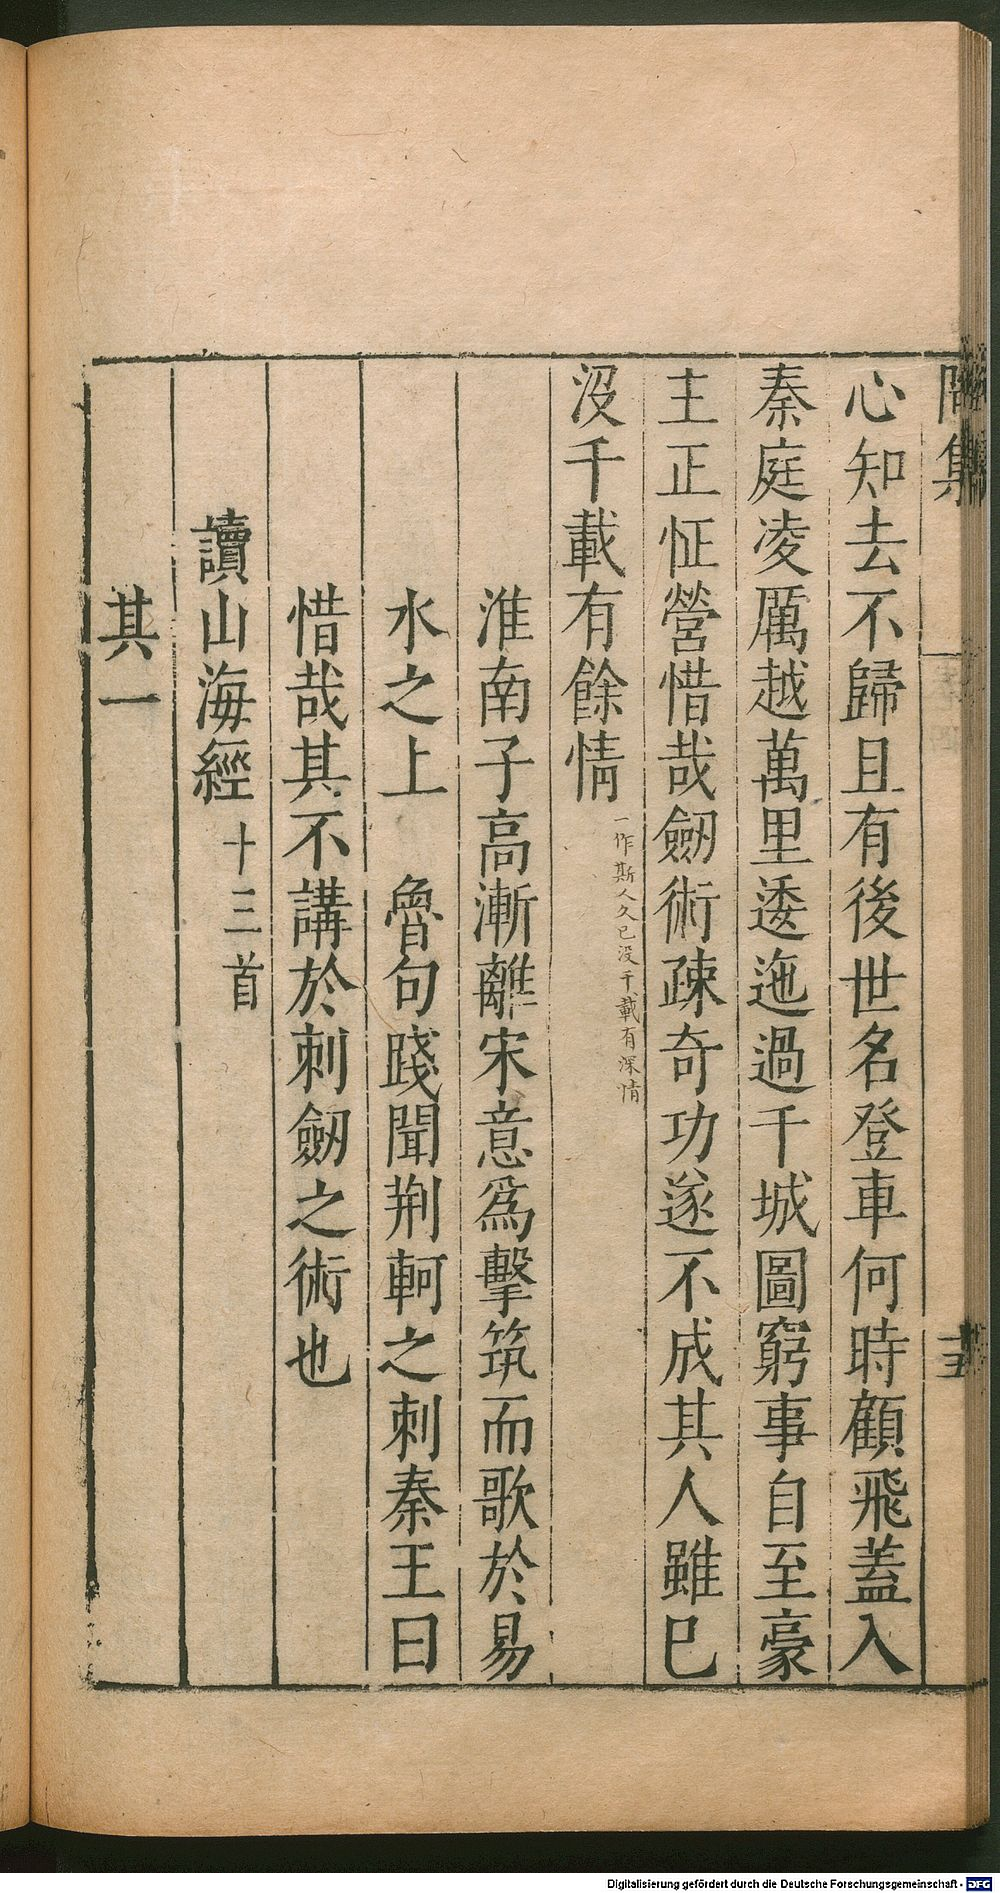 心知去不歸且有後世名登車何時顧飛蓋入
秦庭凌厲越萬里逶迤過千城圖窮事自至豪
主正怔營惜哉劒術疎奇功遂不成其人雖已
沒千載有餘情
一作斯人久已没千載有深情
淮南子高漸離宋意爲擊筑而歌於易
水之上 魯句踐聞荆軻之刺秦王曰
惜哉其不講於刺劒之術也
讀山海經 十三首
其一
Digitalisierung gefördert durch die Deutsche Forschungsgemeinschaft - DFG